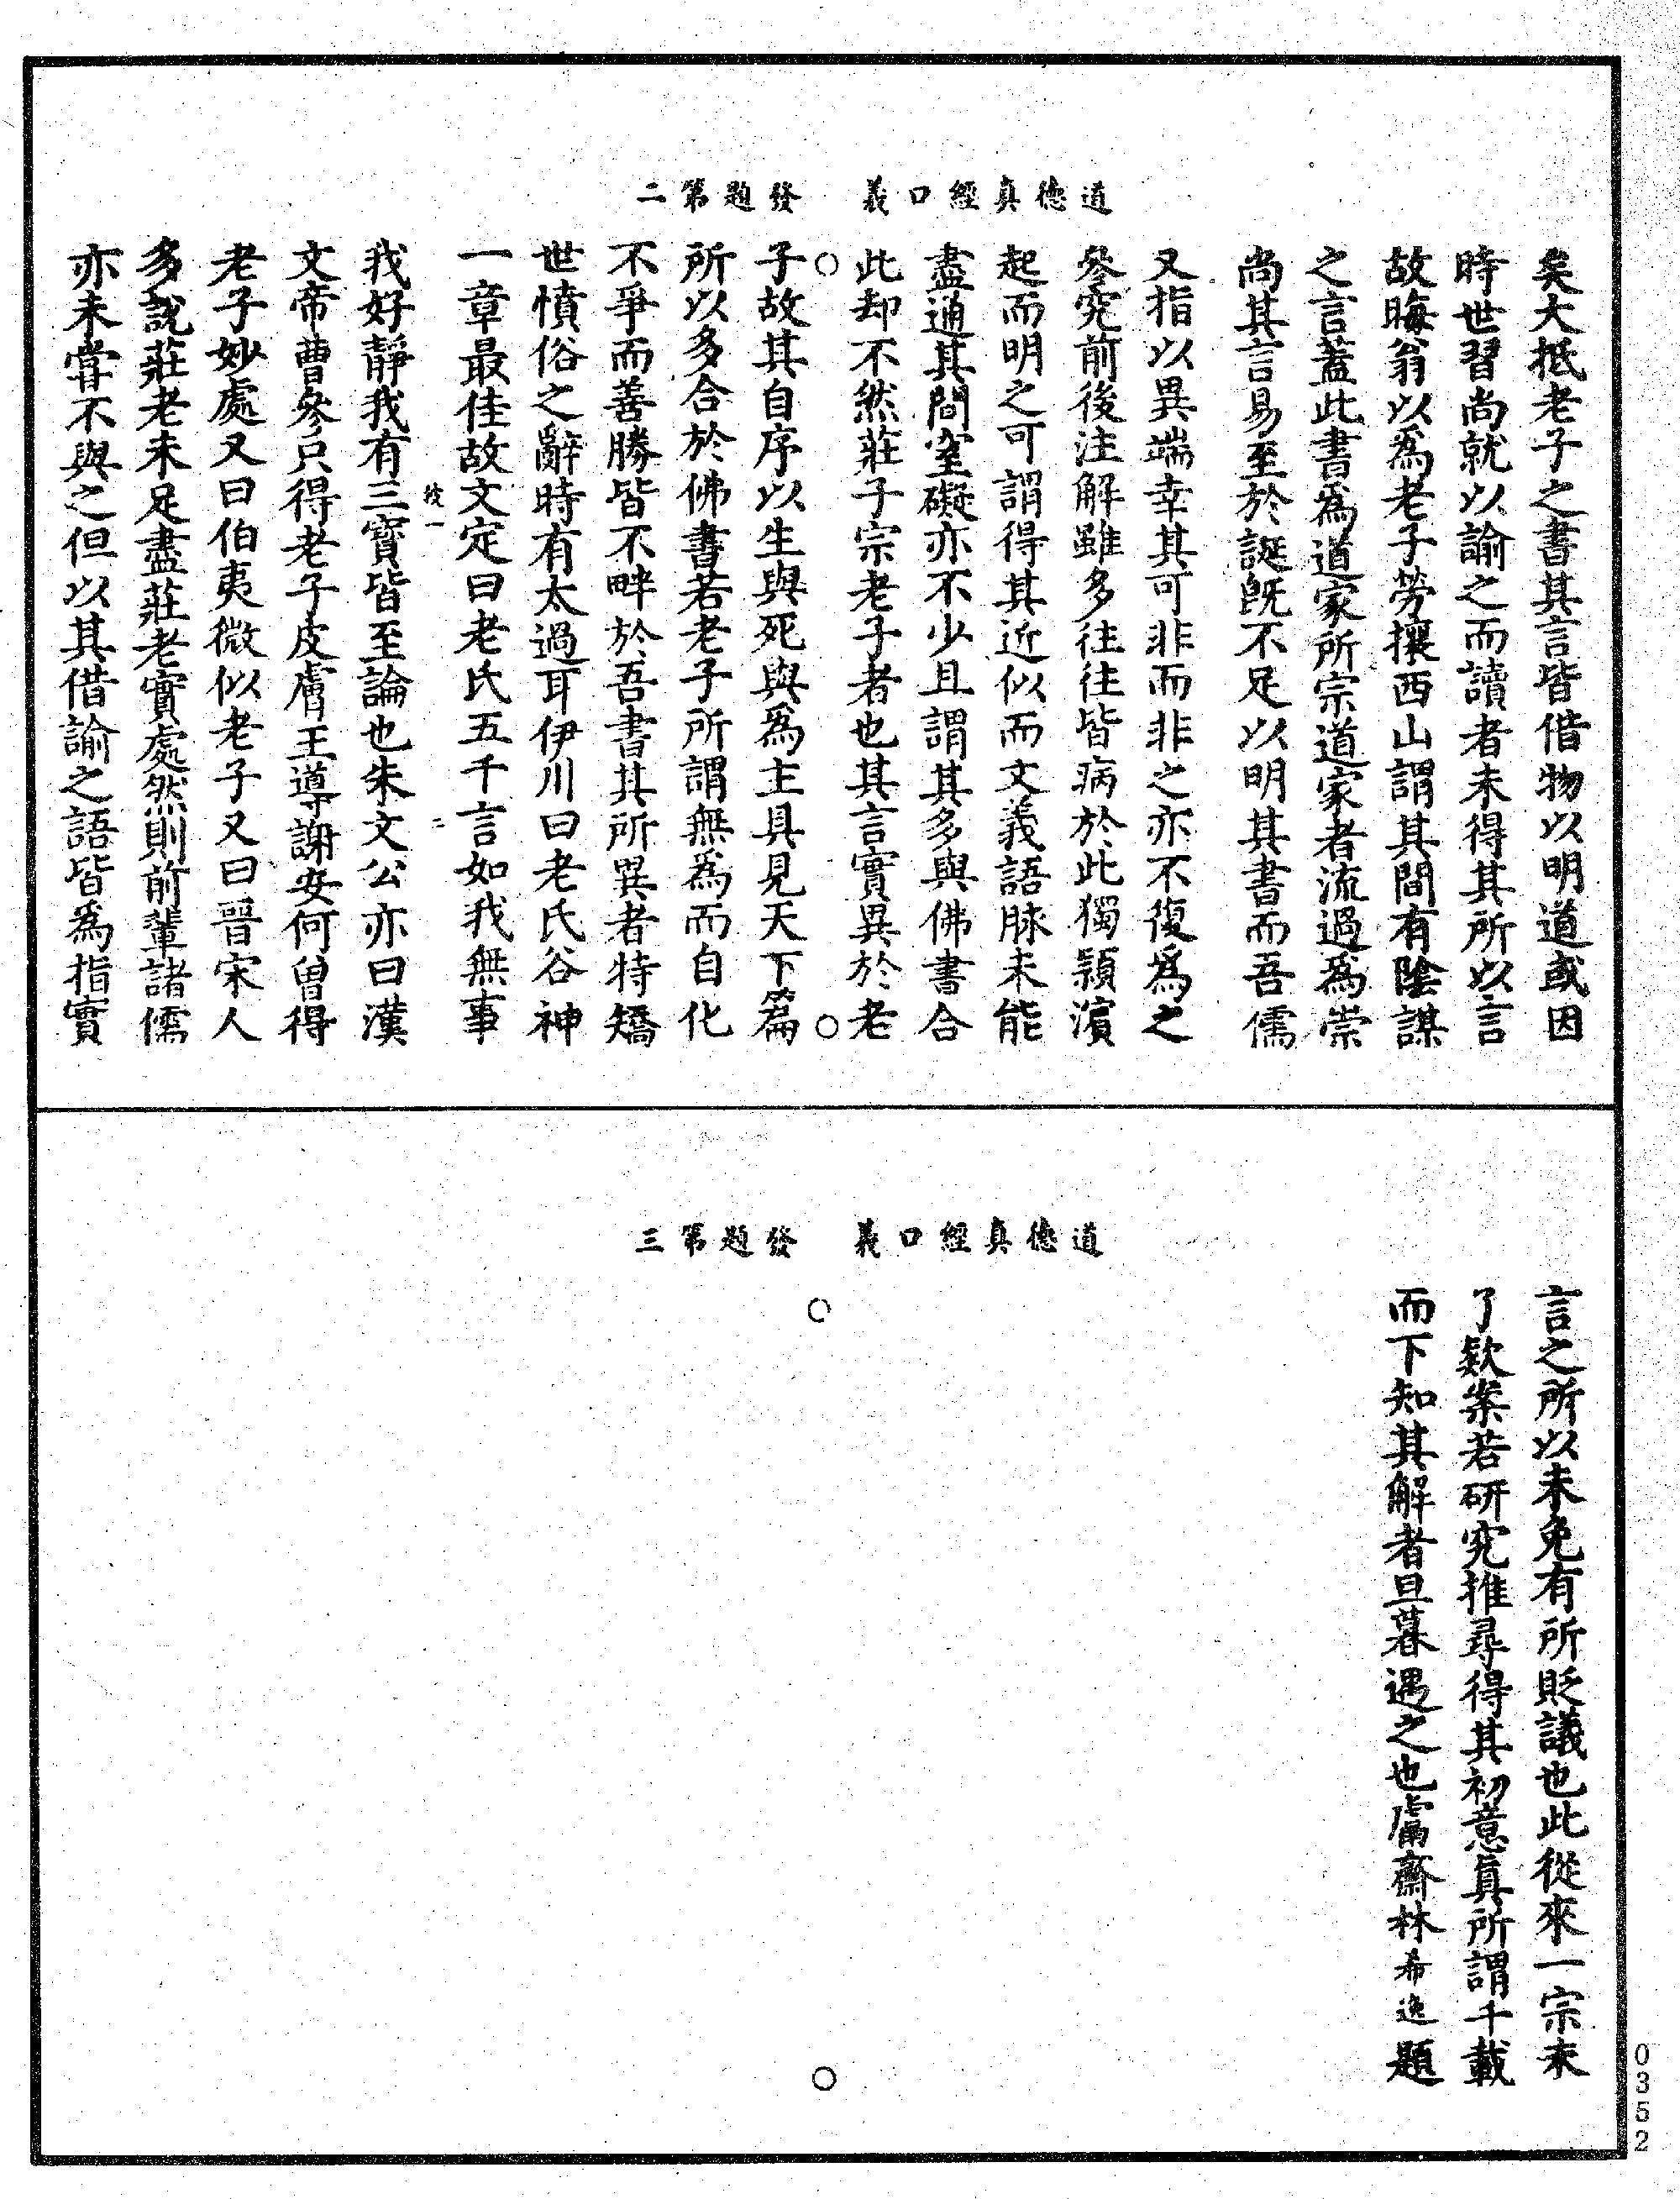 道德真經口義　發題第二
矣大抵老子之書其言皆借物以明道或因
時世習尚就以諭之而讀者未得其所以言
故晦翁以爲老子勞攘西山謂其間有陰謀
之言蓋此書爲道家所宗道家者流過爲崇
尚其言易至於誕既不足以明其書而吾儒
又指以異端幸其可非而非之亦不復爲之
參究前後注解雖多往往皆病於此獨頴濵
起而明之可謂得其近似而文義語脉未能
盡通其間窒礙亦不少且謂其多與佛書合
此却不然莊子宗老子者也其言實異於老
子故其自序以生與死與爲主具見天下篇
所以多合於佛書若老子所謂無爲而自化
不爭而善勝皆不畔於吾書其所異者特矯
世憤俗之辭時有太過耳伊川曰老氏谷神
一章最佳故文定曰老氏五千言如我無事
彼一　二
我好靜我有三寳皆至論也朱文公亦曰漢
文帝曹參只得老子皮膚王導謝安何曽得
老子妙處又曰伯夷微似老子又曰晉宋人
多說莊老未足盡莊老實處然則前輩諸儒
亦未嘗不與之但以其借諭之語皆爲指實
道德真經口義　發題第三
言之所以未免有所貶議也此從來一宗未
了欵案若研究推尋得其初意真所謂千載
而下知其解者旦暮遇之也鬳齋林希逸題
0352